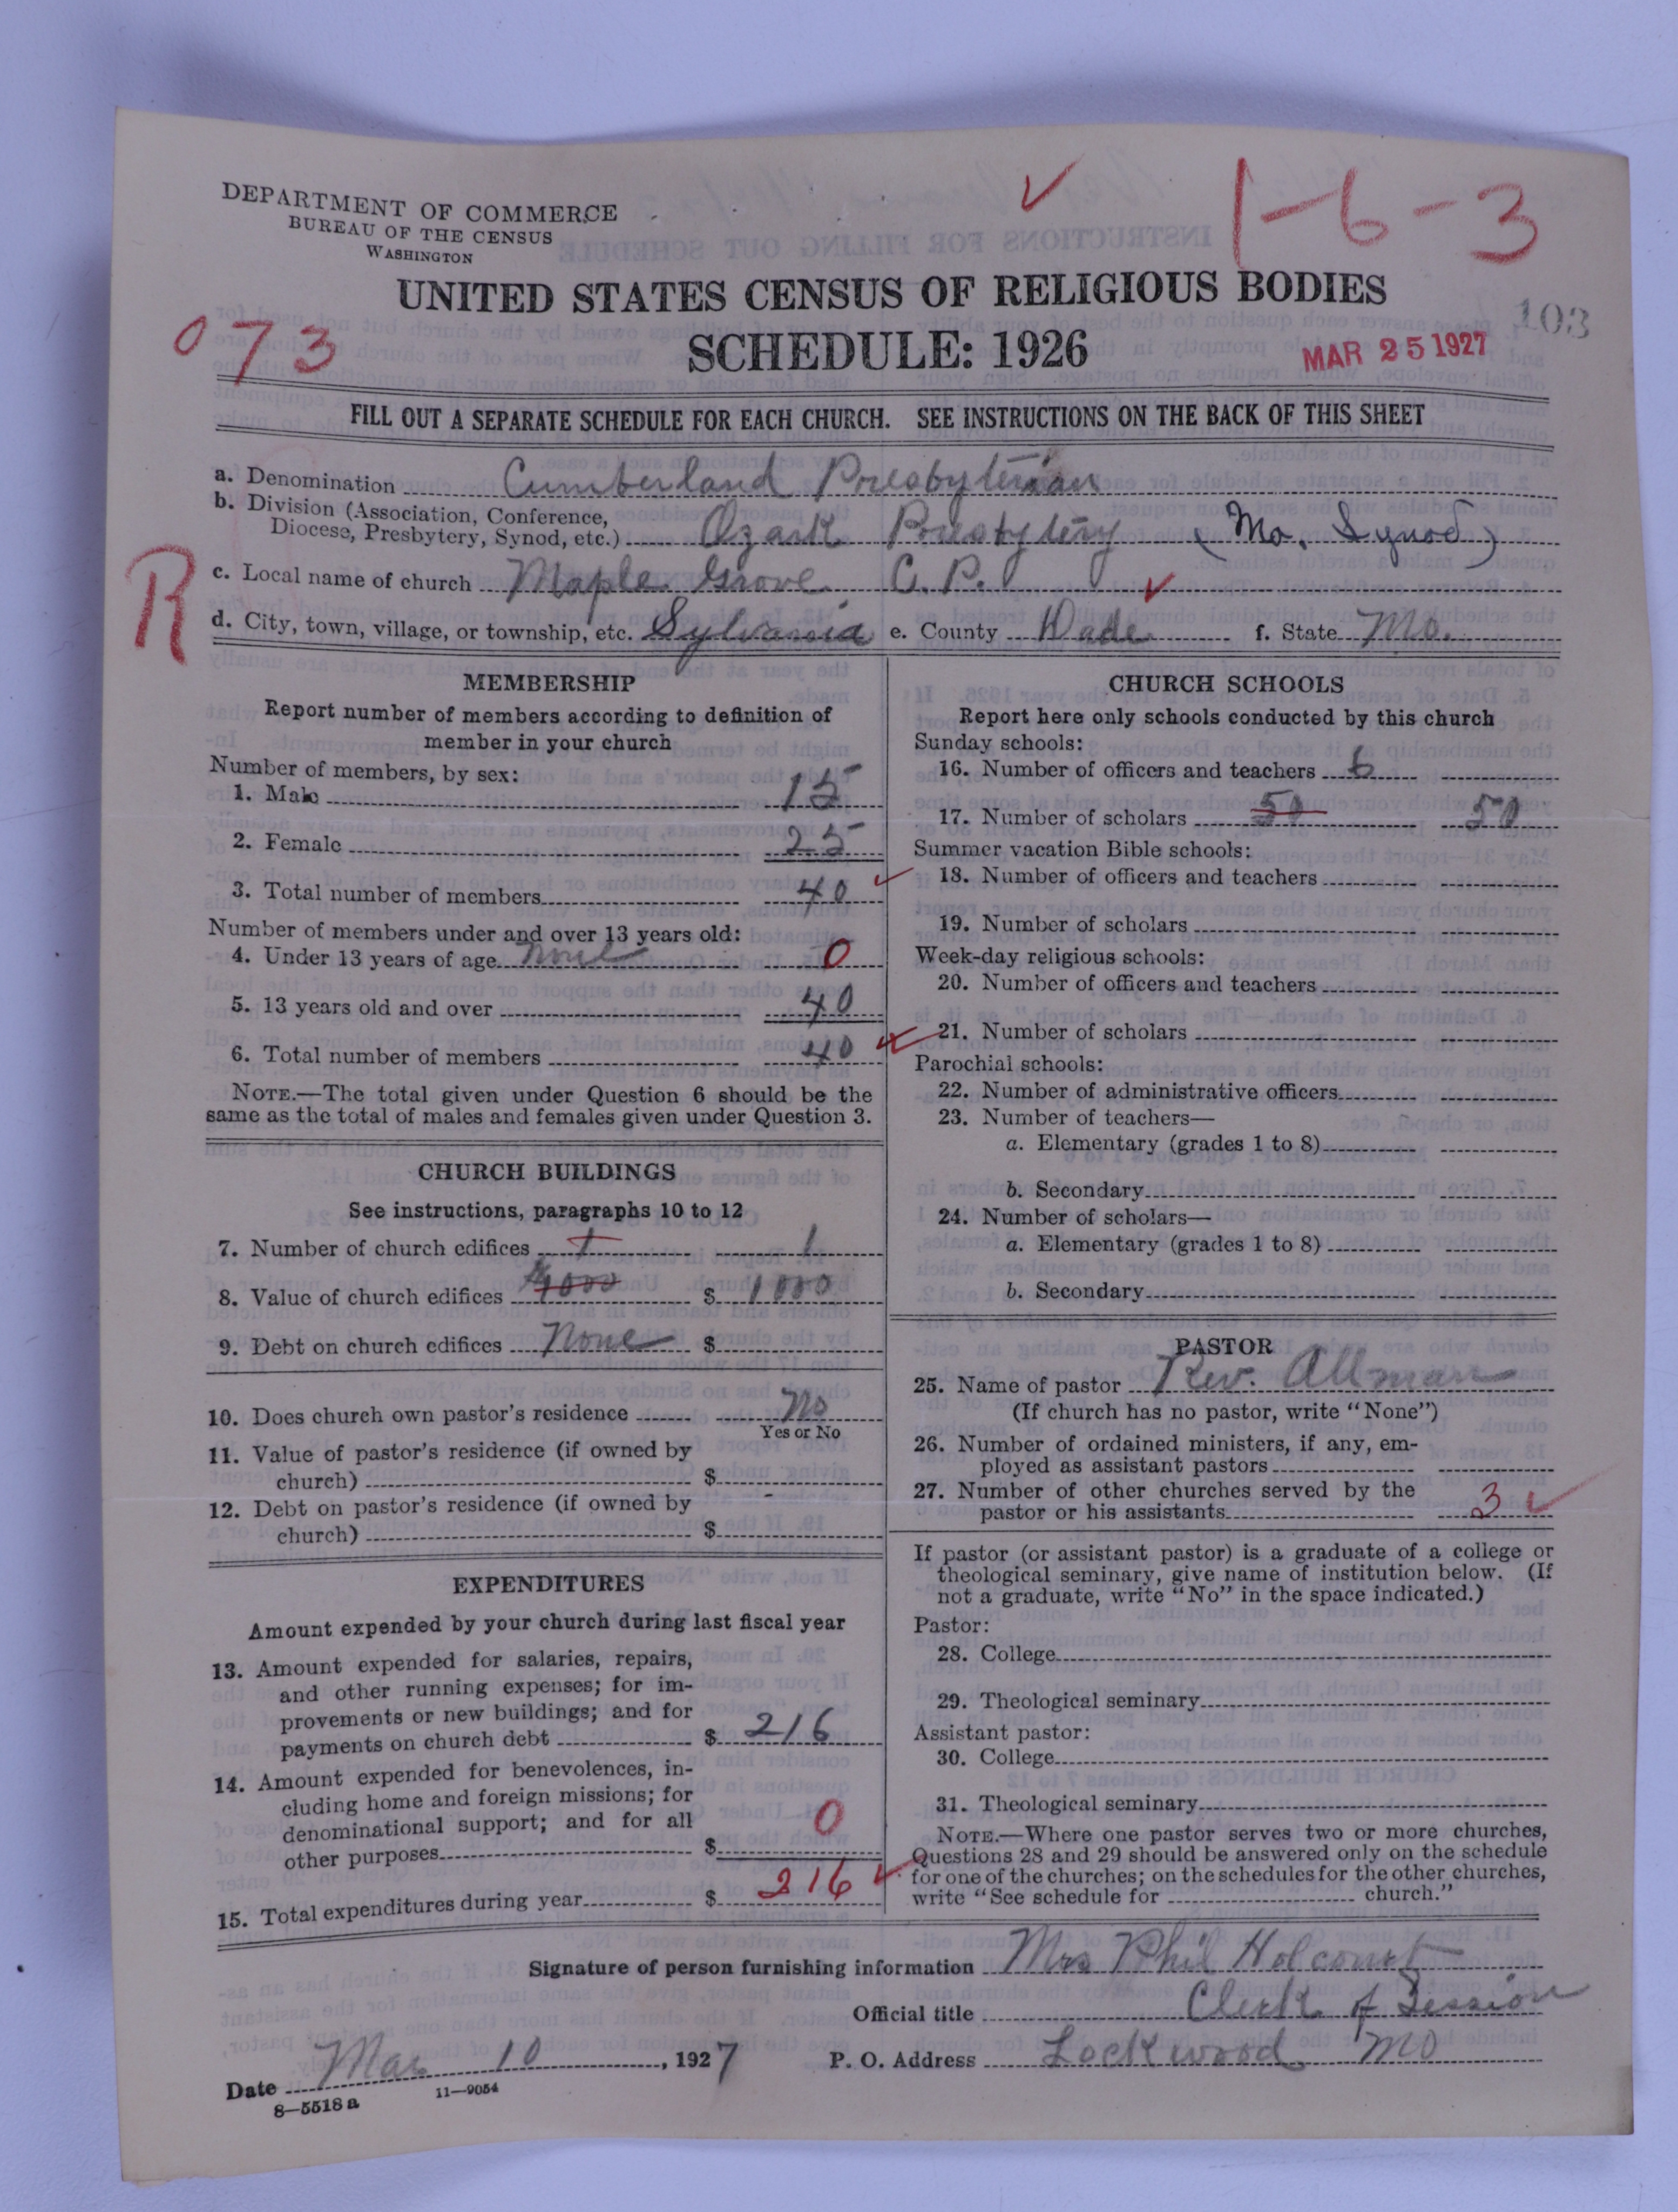 DEPARTMENT OF COMMERCE
BUREAU OF THE CENSUS
WASHINGTON
1-6-3
UNITED STATES CENSUS OF RELIGIOUS BODIES
073
SCHEDULE: 1926
103
MAR 25 1927
FILL OUT A SEPARATE SCHEDULE FOR EACH CHURCH. SEE INSTRUCTIONS ON THE BACK OF THIS SHEET
a. Denomination Cumberland Presbyterian
b. Division (Association, Conference,
Diocese, Presbytery, Synod, etc.) Ozark Presbytery (Mo. Synod)
R
c. Local name of church Maple Grove C. P.
d. City, town, village, or township, etc. Sylvania e. County Dade f. State Mo.
MEMBERSHIP
Report number of members according to definition of
member in your church
Number of members, by sex:
1. Male 15
2. Female 25
3. Total number of members 40
Number of members under and over 13 years old:
4. Under 13 years of age none 0
5. 13 years old and over 40
6. Total number of members 40
NOTE.—The total given under Question 6 should be the
same as the total of males and females given under Question 3.
CHURCH BUILDINGS
See instructions, paragraphs 10 to 12
7. Number of church edifices 1 1
8. Value of church edifices $1000 $ 1000
9. Debt on church edifices None $
10. Does church own pastor's residence No
Yes or No
11. Value of pastor's residence (if owned by
church) $
12. Debt on pastor's residence (if owned by
church) $
EXPENDITURES
Amount expended by your church during last fiscal year
13. Amount expended for salaries, repairs,
and other running expenses; for im-
provements or new buildings; and for
payments on church debt $ 216
14. Amount expended for benevolences, in-
cluding home and foreign missions; for
denominational support; and for all
other purposes $ 0
15. Total expenditures during year $ 216
CHURCH SCHOOLS
Report here only schools conducted by this church
Sunday schools:
16. Number of officers and teachers 6
17. Number of scholars 50 50
Summer vacation Bible schools:
18. Number of officers and teachers
19. Number of scholars
Week-day religious schools:
20. Number of officers and teachers
21. Number of scholars
Parochial schools:
22. Number of administrative officers
23. Number of teachers—
a. Elementary (grades 1 to 8)
b. Secondary
24. Number of scholars—
a. Elementary (grades 1 to 8)
b. Secondary
PASTOR
25. Name of pastor Rev. Allman
(If church has no pastor, write "None")
26. Number of ordained ministers, if any, em-
ployed as assistant pastors
27. Number of other churches served by the
pastor or his assistants 3
If pastor (or assistant pastor) is a graduate of a college or
theological seminary, give name of institution below. (If
not a graduate, write "No" in the space indicated.)
Pastor:
28. College
29. Theological seminary
Assistant pastor:
30. College
31. Theological seminary
NOTE.—Where one pastor serves two or more churches,
Questions 28 and 29 should be answered only on the schedule
for one of the churches; on the schedules for the other churches,
write "See schedule for church."
Signature of person furnishing information Mrs Phil Holcourt
Official title Clerk of Session
Date Mar 10, 1927 P. O. Address Lockwood Mo
8-5518 a 11-9054